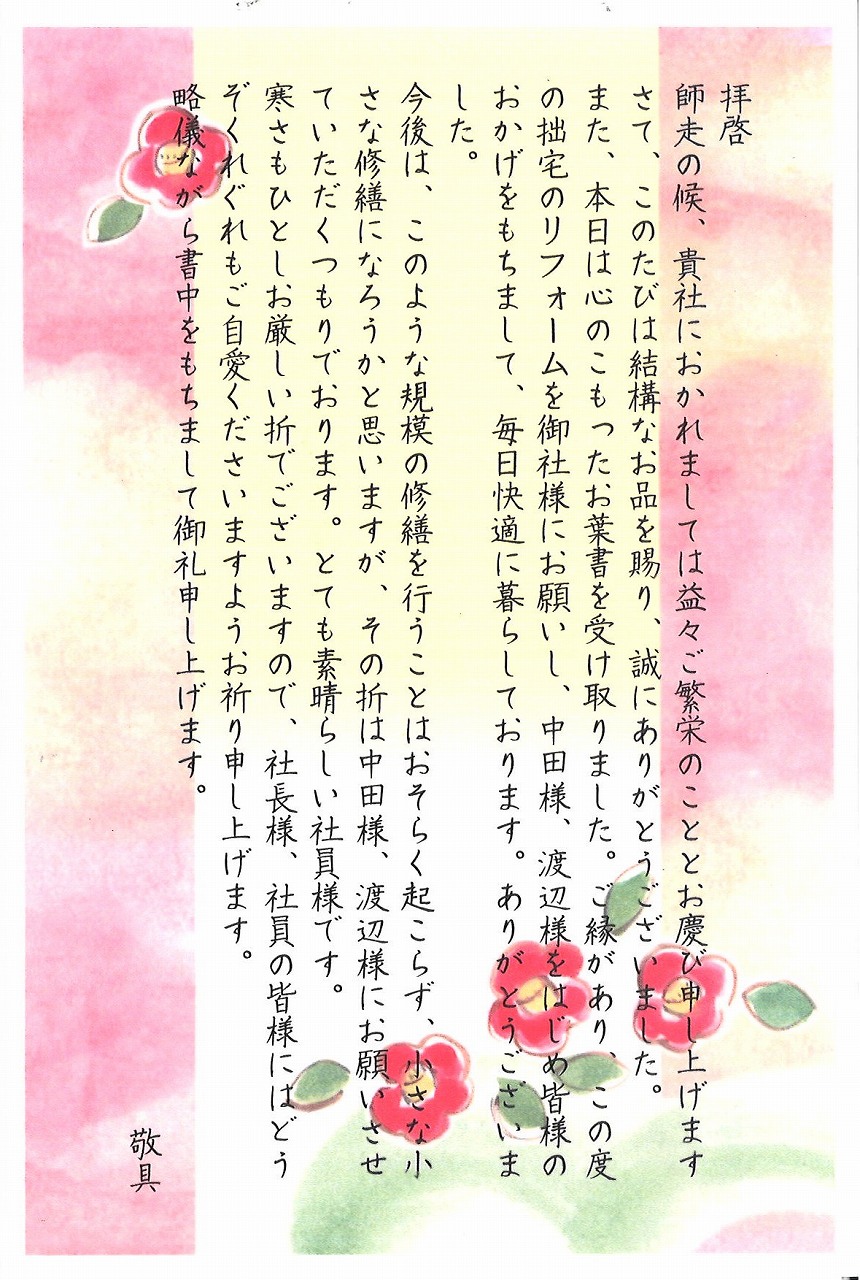 拝啓
師走の候、貴社におかれましては益々ご繁栄のこととお慶び申し上げます
さて、このたびは結構なお品を賜り、誠にありがとうございました。
また、本日は心のこもったお葉書を受け取りました。ご縁があり、この度
の拙宅のリフォームを御社様にお願いし、中田様、渡辺様をはじめ皆様の
おかげをもちまして、毎日快適に暮らしております。ありがとうございま
した。
今後は、このような規模の修繕を行うことはおそらく起こらず、小さな小
さな修繕になろうかと思いますが、その折は中田様、渡辺様にお願いさせ
ていただくつもりでおります。とても素晴らしい社員様です。
寒さもひとしお厳しい折でございますので、社長様、社員の皆様にはどう
ぞくれぐれもご自愛くださいますようお祈り申し上げます。
略儀ながら書中をもちまして御礼申し上げます。
敬具